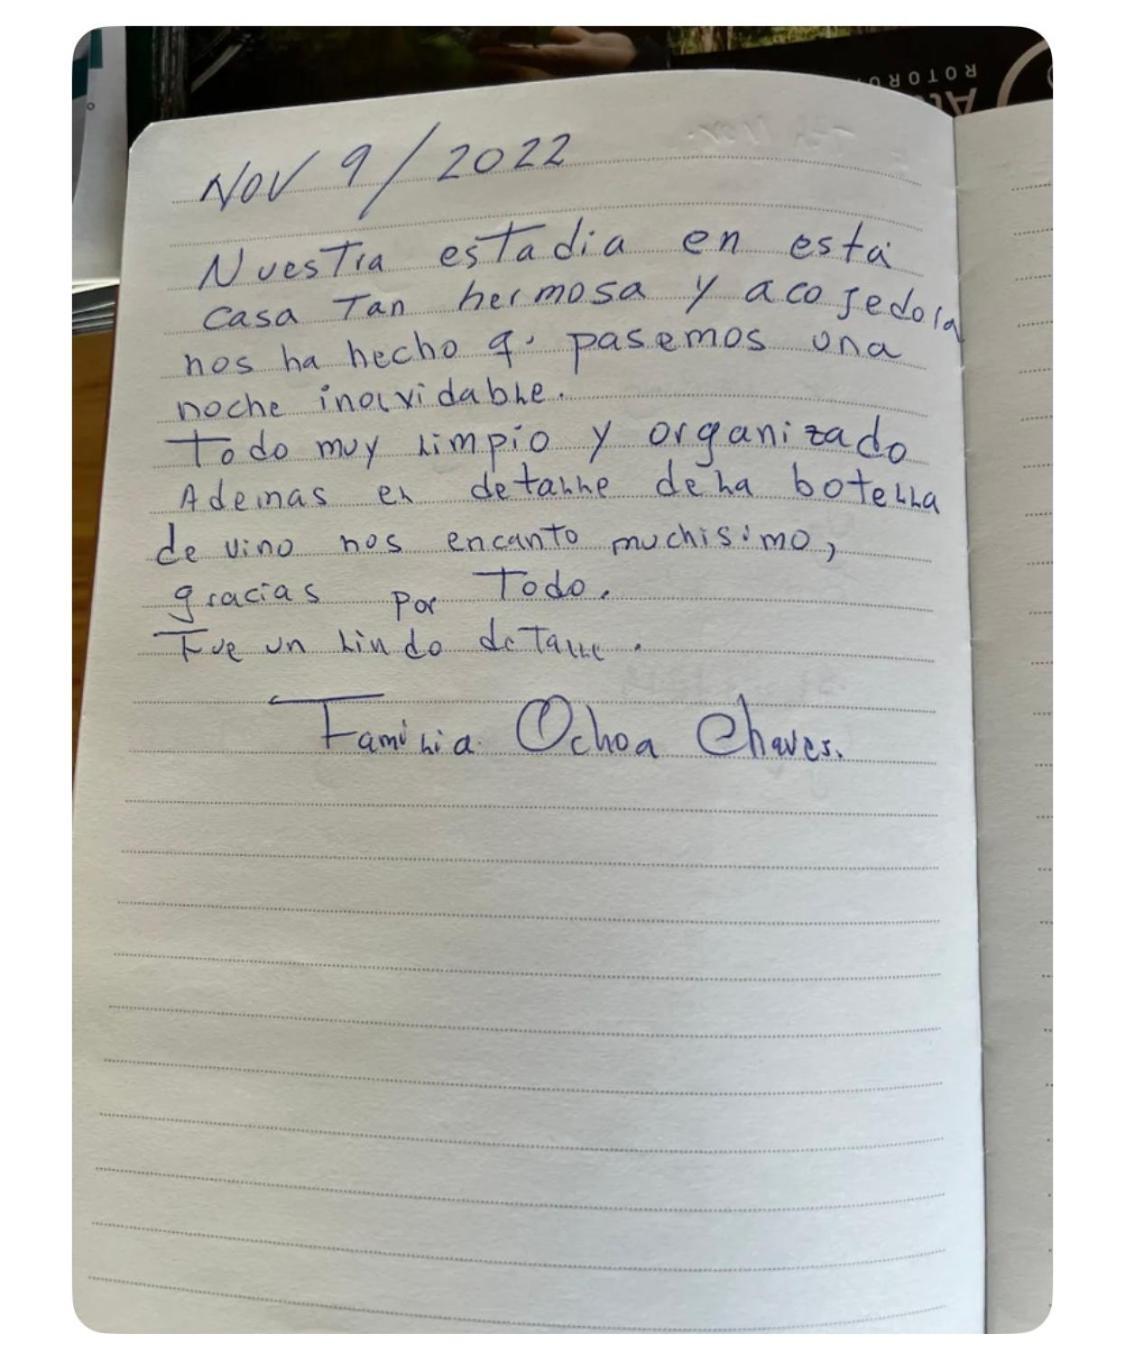 ROTORU
Nov 9/2022
Nuestra estadia en esta
casa Tan hermosa y acojedora
nos ha hecho q' pasemos una
noche inolvidable.
Todo muy limpio y organizado
Ademas el detalle de la botella
de vino nos encanto muchisimo,
gracias por Todo.
Fue un lindo detalle.
Familia Ochoa Chaves.